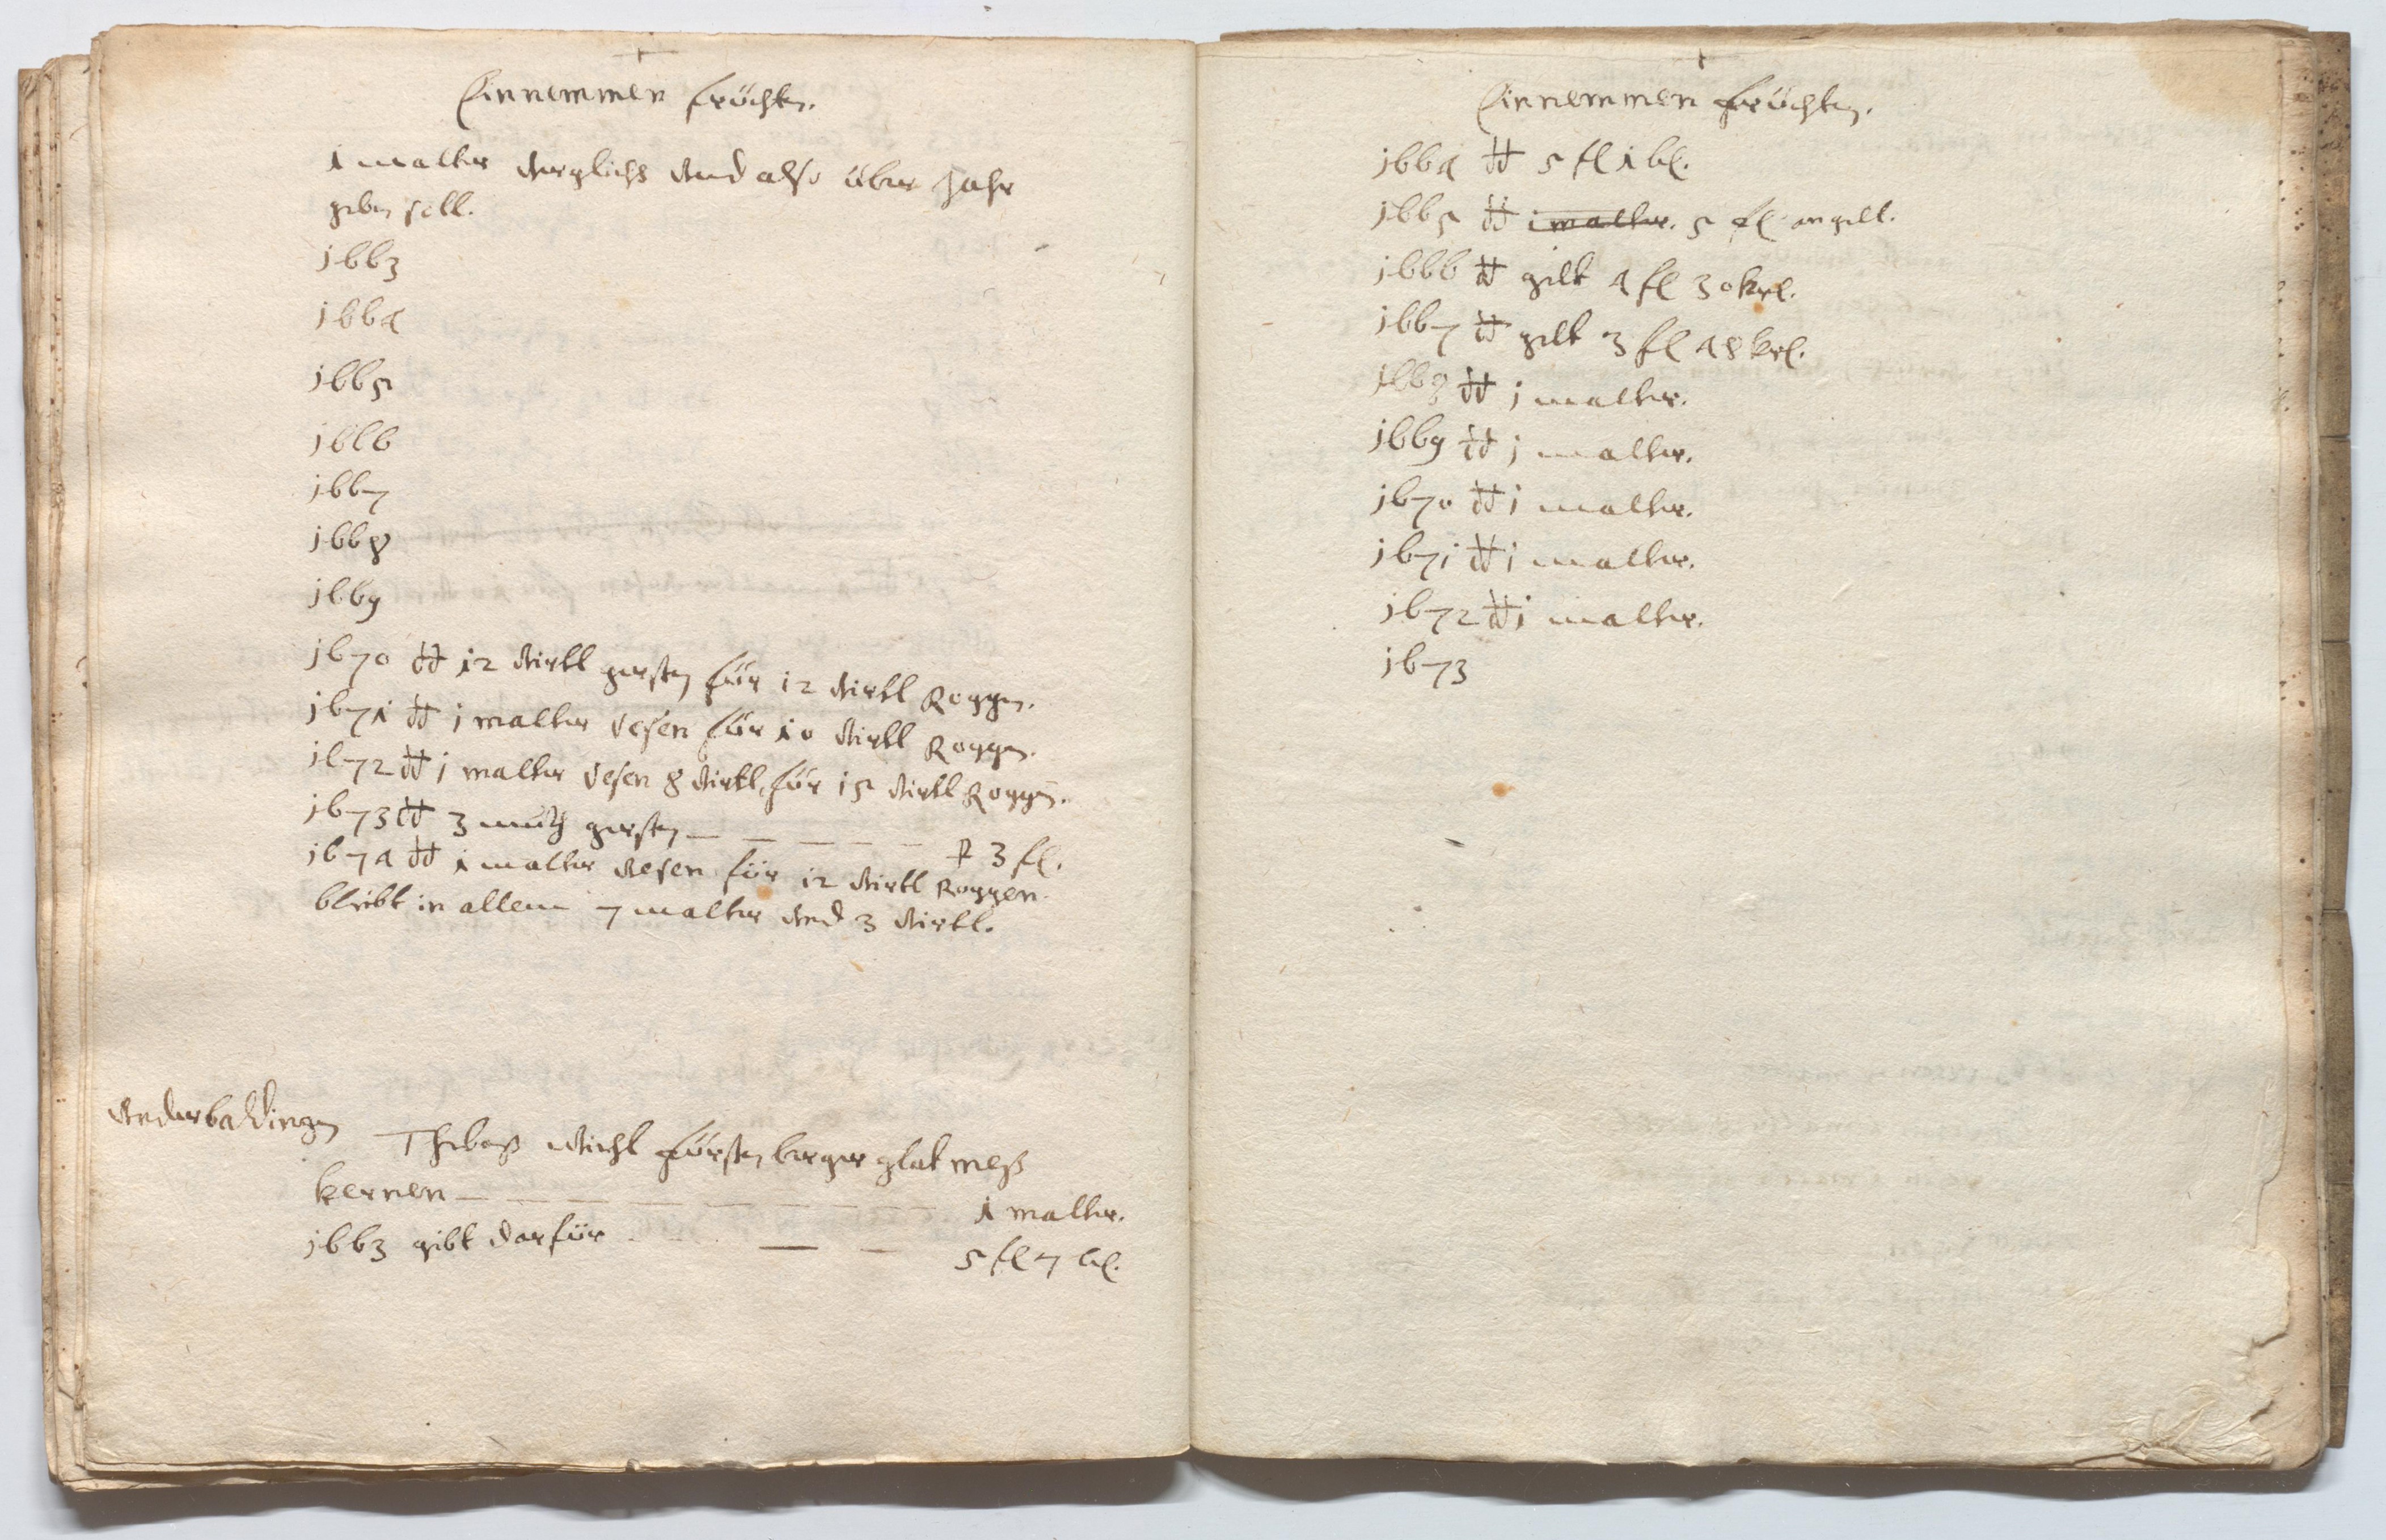 Einnemmen früchten.
1 malter verglichs vnd also über Jahr
geben soll.
1663
1664
1665
1666
1667
1668
1669
1670 dt 12 viertl gersten für 12 viertl Roggen.
1671 dt 1 malter Vesen für 10 viertl Roggen.
1672 dt 1 malter Vesen 8 viertl für 15 viertl Roggen.
1673 dt 3 muth gersten — — — — — — P 3 fl.
1674 dt 1 malter vesen für 12 viertl Roggen.
bleibt in allem 7 malter vnd 3 viertl.
Vnderbaldingen
Thebas Vticht fürstenberger glat meß
kernen — — — — — — — 1 malter.
1663 gibt darfür — — — 5 fl 7 bz.
Einnemmen früchten.
1664 dt 5 fl 1 bz.
1665 dt 1 malter. 5 fl an gelt.
1666 dt gelt 4 fl 30 krz.
1667 dt gelt 3 fl 48 krz.
1668 dt 1 malter.
1669 dt 1 malter.
1670 dt 1 malter.
1671 dt 1 malter.
1672 dt 1 malter.
1673